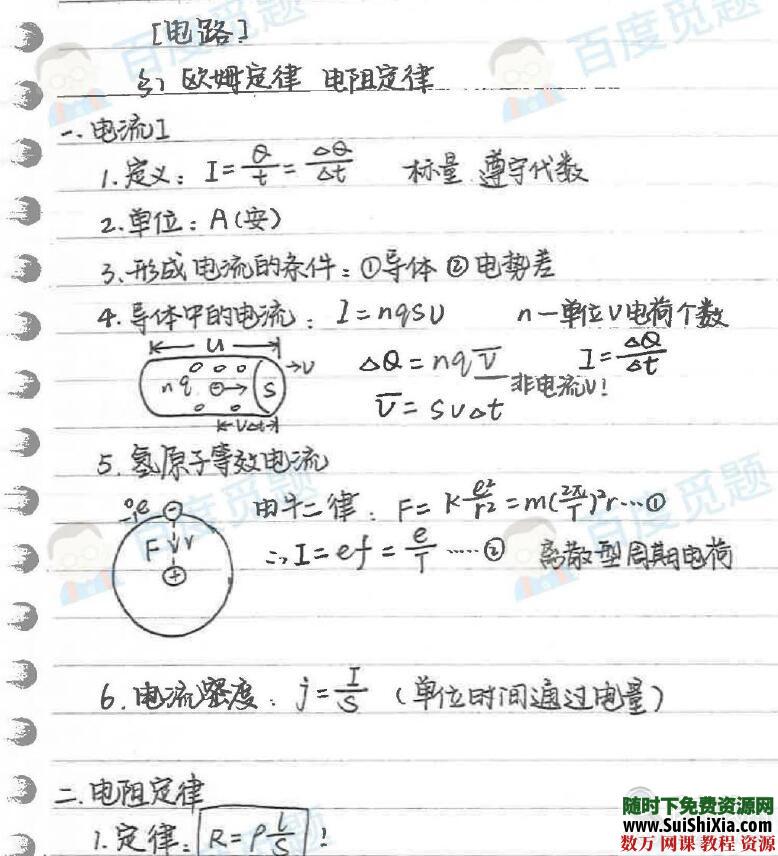 [电路]
§1 欧姆定律 电阻定律
一. 电流I
1. 定义: I = Q/t = ΔQ/Δt 标量 遵守代数
2. 单位: A(安)
3. 形成电流的条件: ①导体 ②电势差
4. 导体中的电流: I = nqSv n—单位V电荷个数
U
nq S →v
vΔt
ΔQ = nqV I = ΔQ/Δt
V = SvΔt 非电流v!
5. 氢原子等效电流
⁰₋₁e −
F v +
由牛二律: F = k e²/r² = m(2π/T)²r …①
∴ I = ef = e/T ……② 离散型周期电荷
6. 电流密度: j = I/S (单位时间通过电量)
二. 电阻定律
1. 定律: R = ρ L/S !
百度觅题
百度觅题
百度觅题
百度觅题
随时下免费资源网
www.SuiShiXia.com
数万 网课 教程 资源